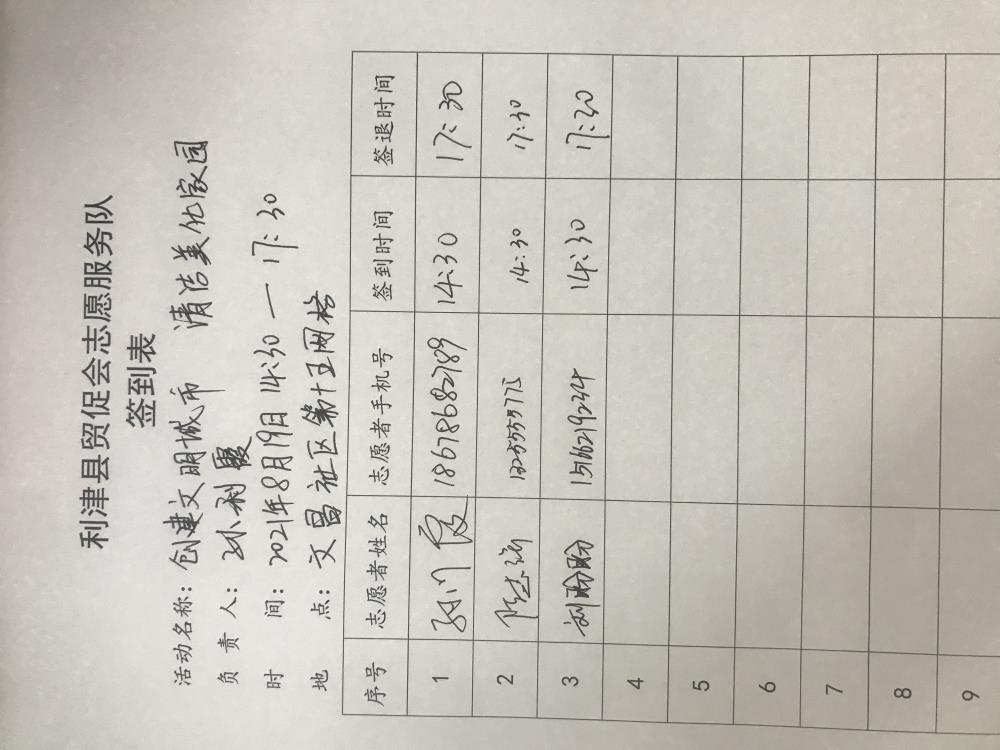 利津县贸促会志愿服务队
签到表
活动名称：创建文明城市 清洁美化家园
负 责 人：孙利霞
时 间：2021年8月19日 14:30 — 17:30
地 点：文昌社区第十五网格
序号 志愿者姓名 志愿者手机号 签到时间 签退时间
1 18678682789 14:30 17:30
2 13255557175 14:30 17:30
3 刘盼盼 15166219234 14:30 17:30
4
5
6
7
8
9